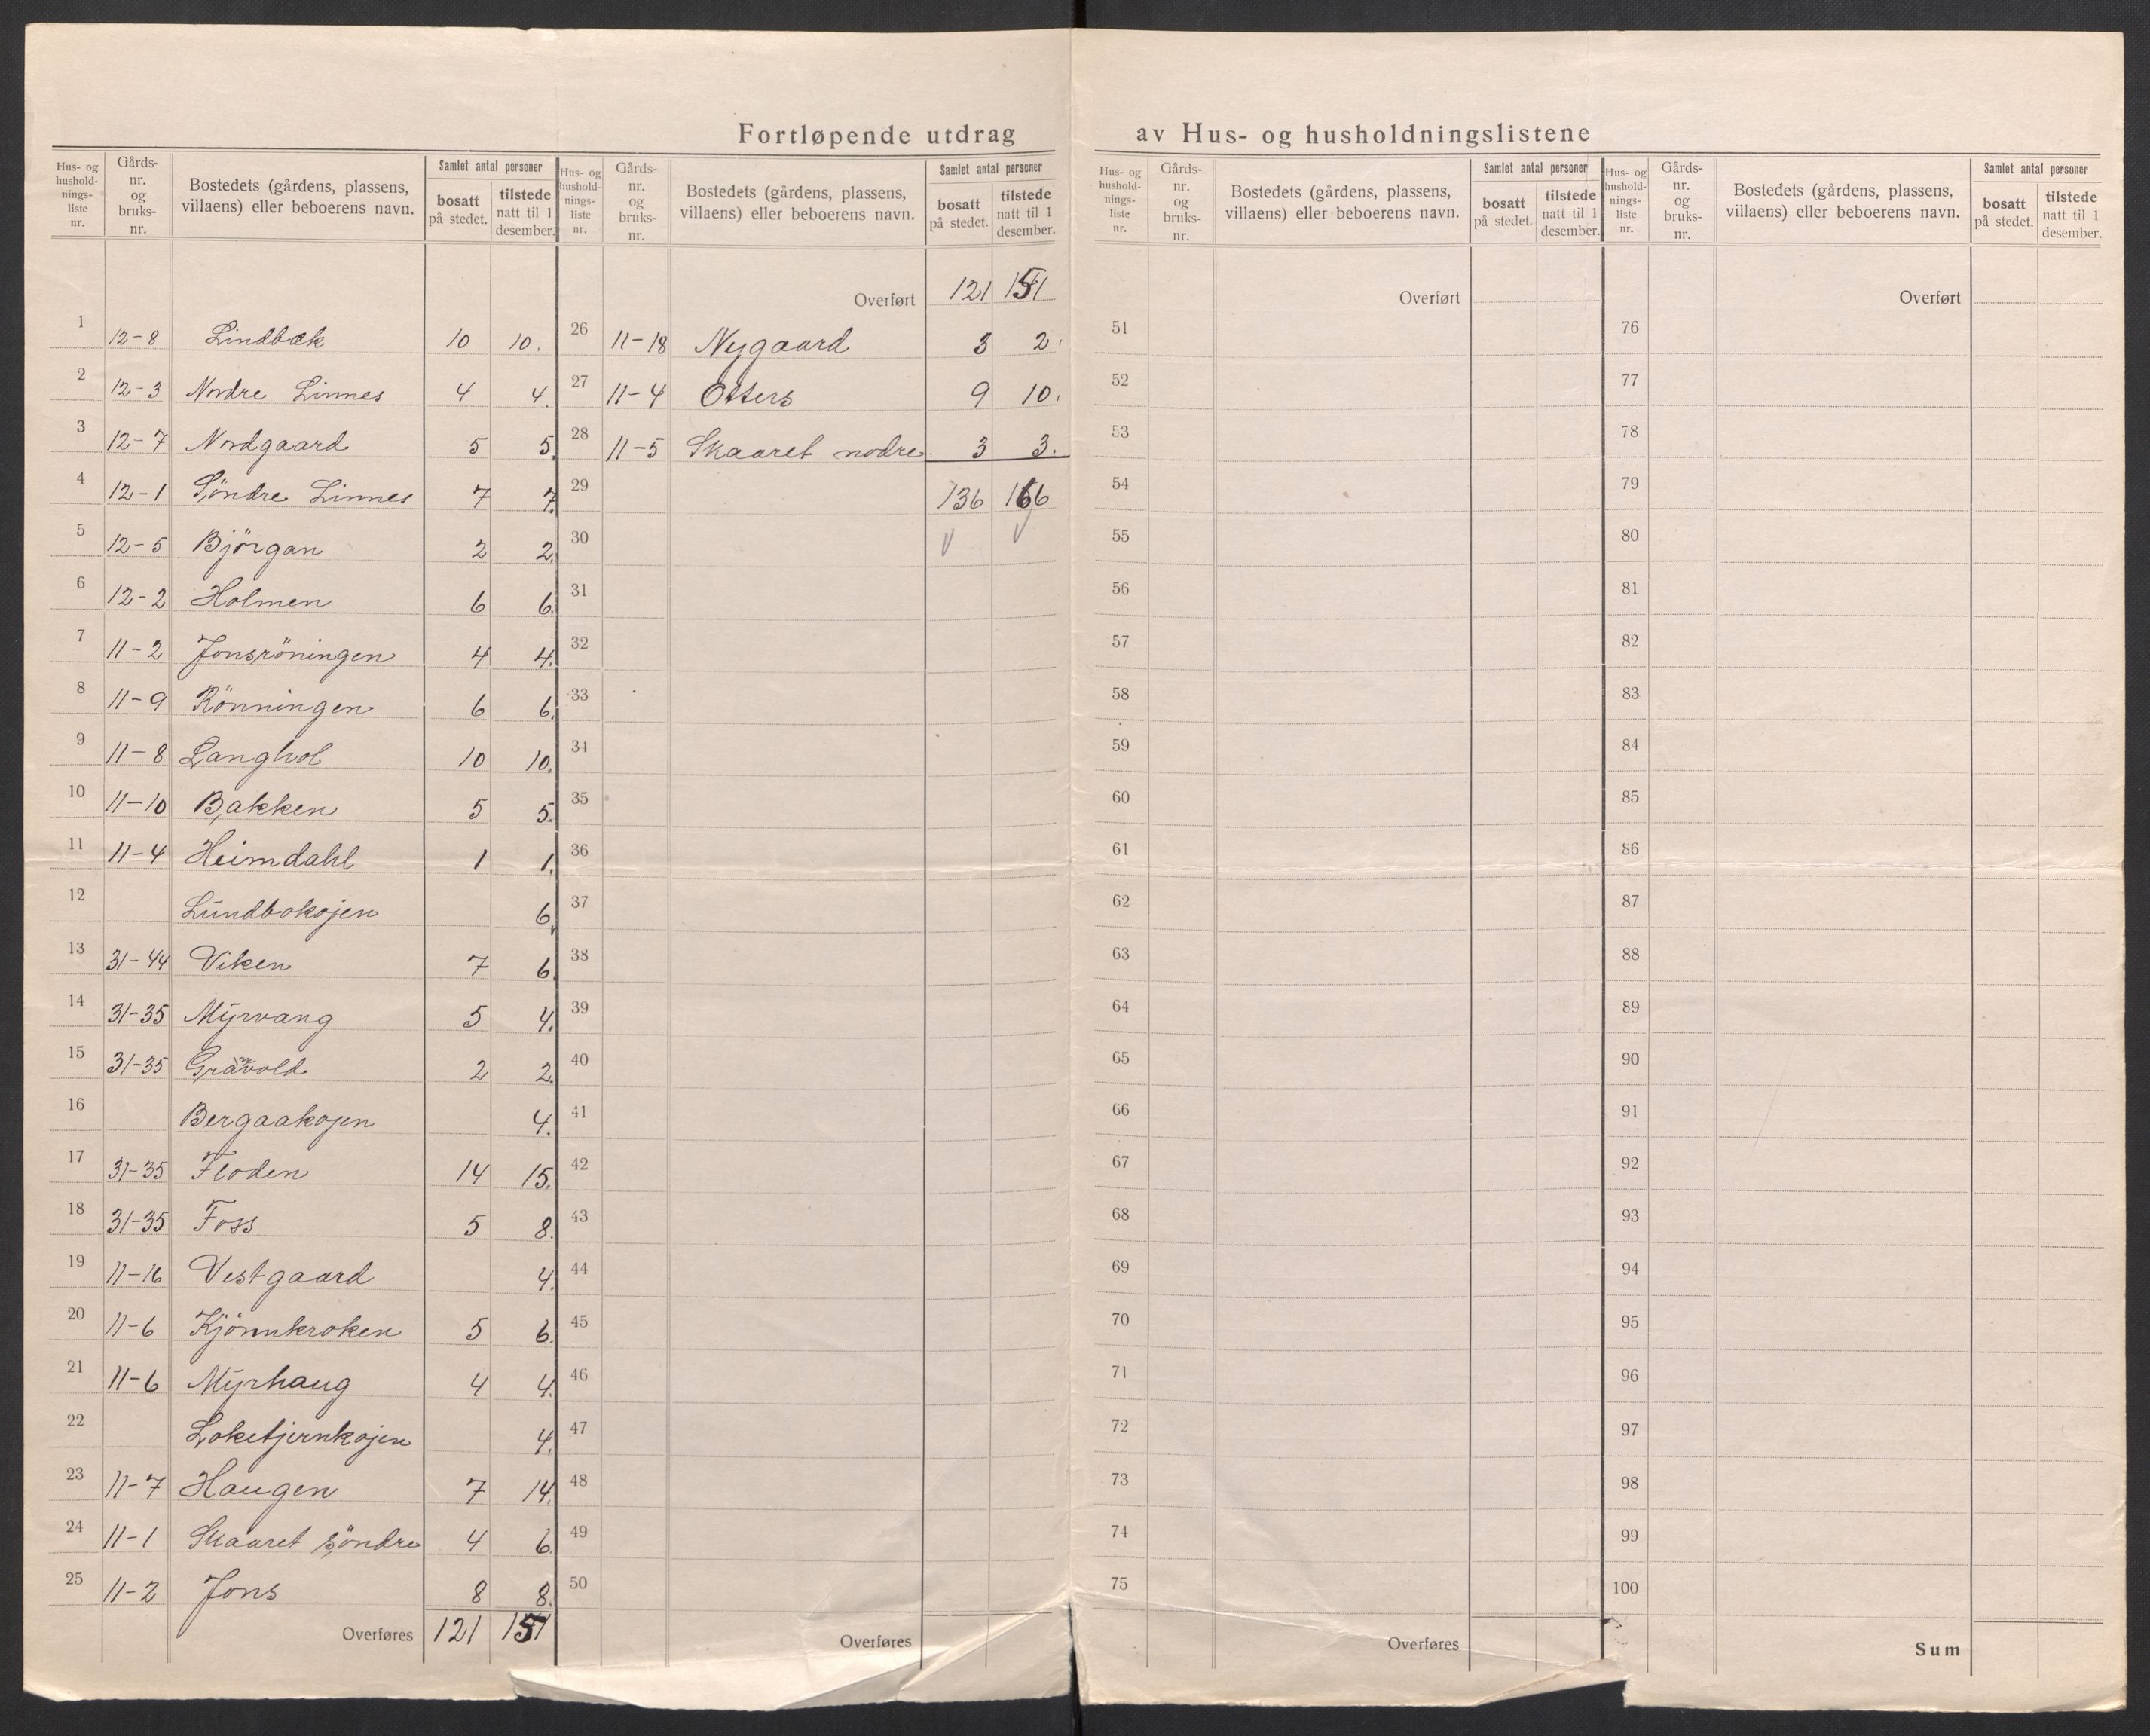 Fortløpende utdrag av Hus- og husholdningslistene
Hus- og hushold-nings-liste nr. | Gårds-nr. og bruks-nr. | Bostedets (gårdens, plassens, villaens) eller beboerens navn. | Samlet antal personer | bosatt på stedet. | tilstede natt til 1 desember.
1 12-8 Lindbæk 10 10.
2 12-3 Nordre Linnes 4 4.
3 12-7 Nordgaard 5 5.
4 12-1 Söndre Linnes 7 7.
5 12-5 Björgan 2 2.
6 12-2 Holmen 6 6.
7 11-2 Jonsröningen 4 4.
8 11-9 Rönningen 6 6.
9 11-8 Langhol 10 10.
10 11-10 Bakken 5 5.
11 11-4 Heimdahl 1 1.
12 Lundbokojen 6
13 31-44 Viken 7 6.
14 31-35 Myrvang 5 4.
15 31-35 2 2.
16 Bergaakojen 4.
17 31-35 Floden 14 15.
18 31-35 Foss 5 8.
19 11-16 Vestgaard 4.
20 11-6 Kjönnkroken 5 6.
21 11-6 Myrhaug 4 4.
22 Loketjernkojen 4.
23 11-7 Haugen 7 14.
24 11-1 Skaaret söndre 4 6.
25 11-2 Jons 8 8.
Overføres 121 151
Hus- og hushold-nings-liste nr. | Gårds-nr. og bruks-nr. | Bostedets (gårdens, plassens, villaens) eller beboerens navn. | Samlet antal personer | bosatt på stedet. | tilstede natt til 1 desember.
Overført 121 151
26 11-18 Nygaard 3 2.
27 11-4 Otters 9 10.
28 11-5 Skaaret nodre 3 3.
29 136 166
30
31
32
33
34
35
36
37
38
39
40
41
42
43
44
45
46
47
48
49
50
Overføres
Hus- og hushold-nings-liste nr. | Gårds-nr. og bruks-nr. | Bostedets (gårdens, plassens, villaens) eller beboerens navn. | Samlet antal personer | bosatt på stedet. | tilstede natt til 1 desember.
Overført
51
52
53
54
55
56
57
58
59
60
61
62
63
64
65
66
67
68
69
70
71
72
73
74
75
Overføres
Hus- og hushold-nings-liste nr. | Gårds-nr. og bruks-nr. | Bostedets (gårdens, plassens, villaens) eller beboerens navn. | Samlet antal personer | bosatt på stedet. | tilstede natt til 1 desember.
Overført
76
77
78
79
80
81
82
83
84
85
86
87
88
89
90
91
92
93
94
95
96
97
98
99
100
Sum